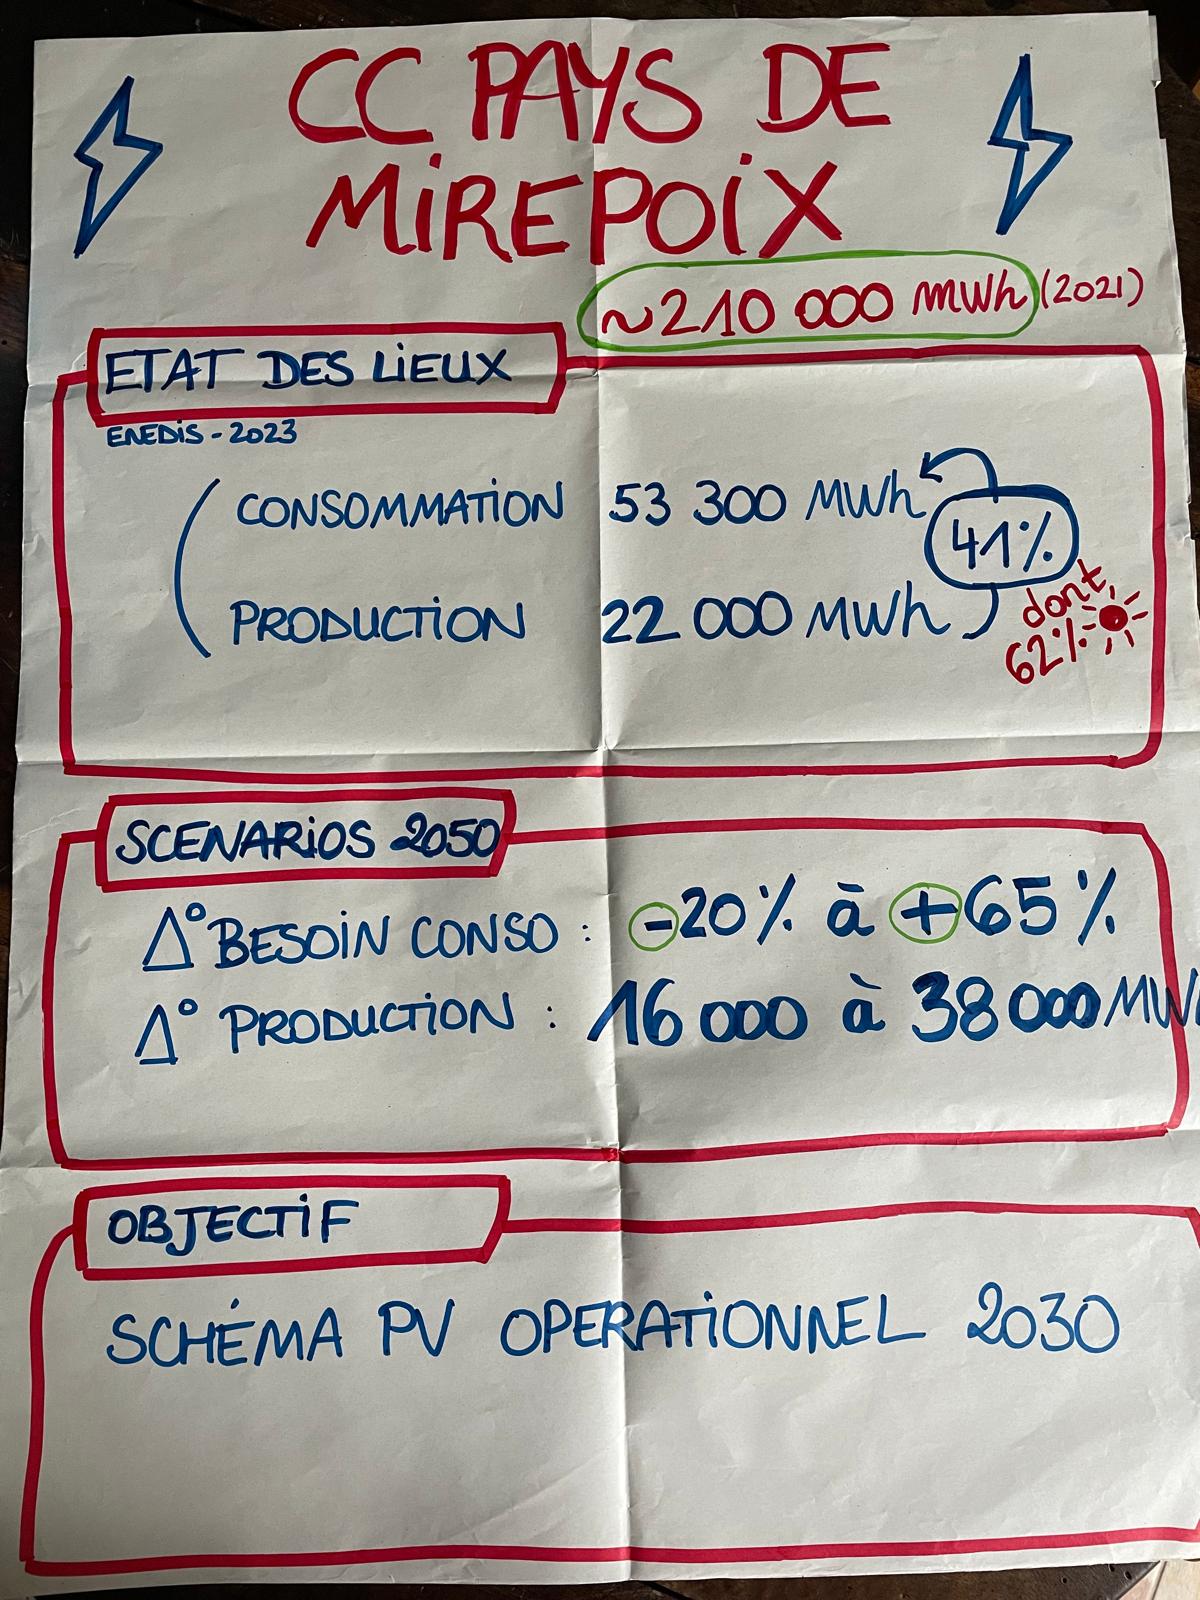 CC PAYS DE
MiREPOiX
~210 000 MWh (2021)
ETAT DES LiEUX
ENEDiS - 2023
CONSOMMATiON 53 300 MWh
41%
PRODUCTiON 22 000 MWh
dont
62%
SCENARiOS 2050
Δ° BESOiN CONSO : -20% à +65%
Δ° PRODUCTiON : 16 000 à 38 000 MWh
OBJECTiF
SCHÉMA PV OPERATiONNEL 2030